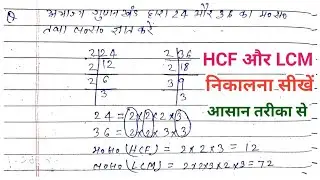 Q अभाज्य गुणनखंड द्वारा 24 और 36 का म०स०
तथा ल०स० ज्ञात करें
2 24
2 12
2 6
3
2 36
2 18
3 9
3
24 = 2×2×2×3
36 = 2×2×3×3
म०स० (HCF) = 2×2×3 = 12
ल०स० (LCM) = 2×2×3×2×3=72
HCF और LCM
निकालना सीखें
आसान तरीका से